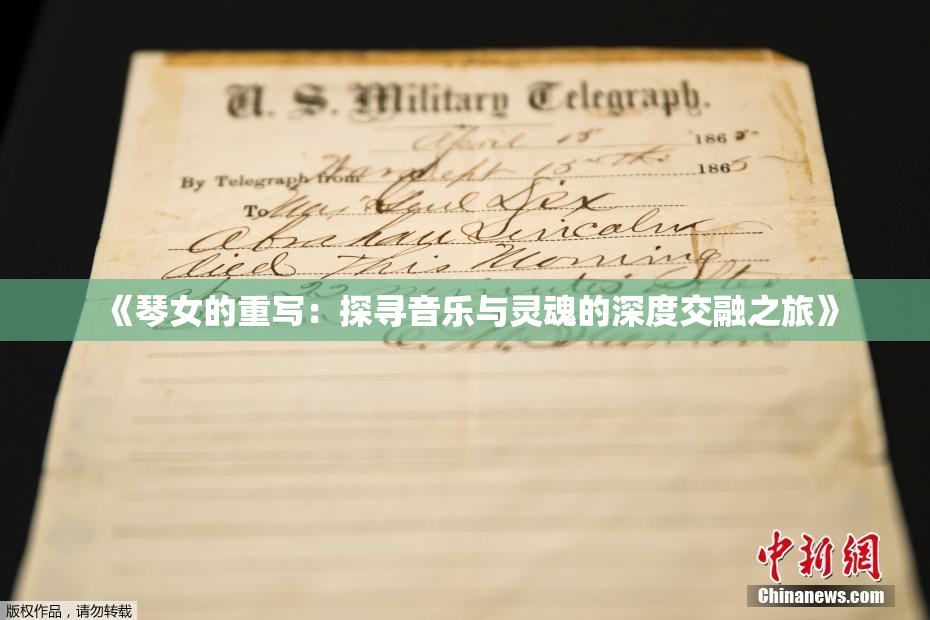 U. S. Military Telegraph.
April 15 1865
By Telegraph from War Dept 15th 1865
To Maj Genl Dix
Abraham Lincoln
died This Morning
22 minutes after
《琴女的重写：探寻音乐与灵魂的深度交融之旅》
E. M. Stanton
中新网
Chinanews.com
版权作品，请勿转载